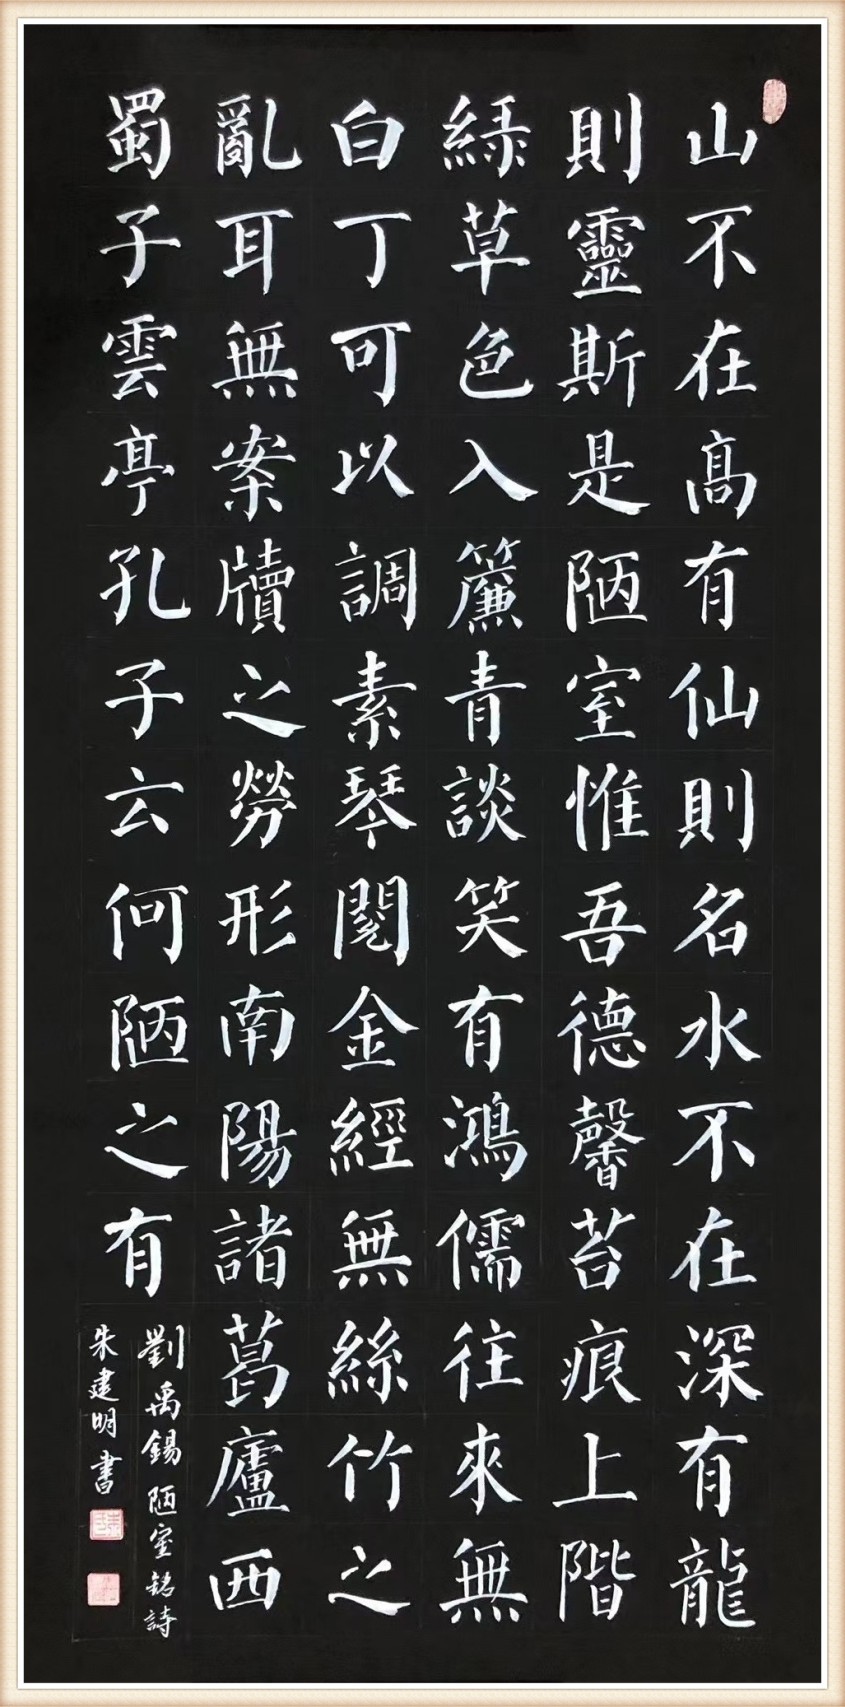 山不在高有仙則名水不在深有龍
則靈斯是陋室惟吾德馨苔痕上階
綠草色入簾青談笑有鴻儒往來無
白丁可以調素琴閱金經無絲竹之
亂耳無案牘之勞形南陽諸葛廬西
蜀子雲亭孔子云何陋之有
劉禹錫陋室銘詩
朱建明書